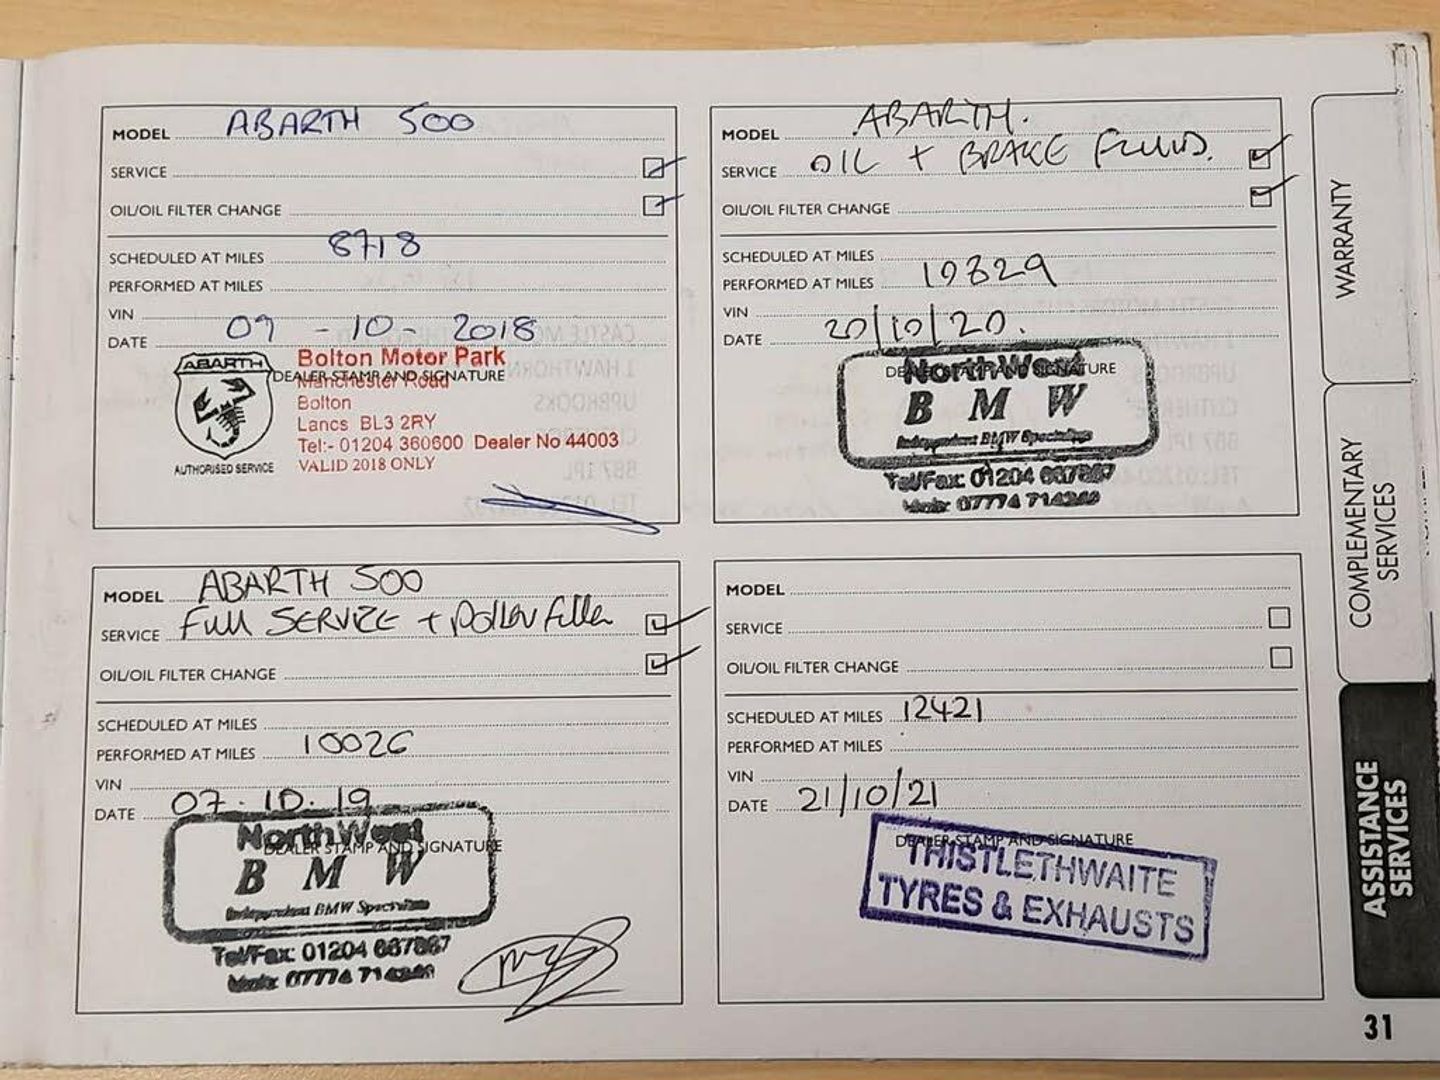 MODEL ABARTH 500
SERVICE
OIL/OIL FILTER CHANGE
SCHEDULED AT MILES 8718
PERFORMED AT MILES
VIN
DATE 09 -10- 2018
DEALER STAMP AND SIGNATURE
ABARTH
AUTHORISED SERVICE
Bolton Motor Park
Manchester Road
Bolton
Lancs BL3 2RY
Tel:- 01204 360600 Dealer No 44003
VALID 2018 ONLY
MODEL ABARTH.
SERVICE OIL + BRAKE FLUID.
OIL/OIL FILTER CHANGE
SCHEDULED AT MILES
PERFORMED AT MILES 10329
VIN
DATE 20/10/20.
DEALER STAMP AND SIGNATURE
North West
BMW
Independent BMW Specialists
Tel/Fax: 01204 667867
MODEL ABARTH 500
SERVICE FULL SERVICE + pollen filter
OIL/OIL FILTER CHANGE
SCHEDULED AT MILES
PERFORMED AT MILES 10026
VIN
DATE 07.10.19
DEALER STAMP AND SIGNATURE
North West
BMW
Independent BMW Specialists
Tel/Fax: 01204 667867
MODEL
SERVICE
OIL/OIL FILTER CHANGE
SCHEDULED AT MILES 12421
PERFORMED AT MILES
VIN
DATE 21/10/21
DEALER STAMP AND SIGNATURE
THISTLETHWAITE
TYRES & EXHAUSTS
WARRANTY
COMPLEMENTARY
SERVICES
ASSISTANCE
SERVICES
31